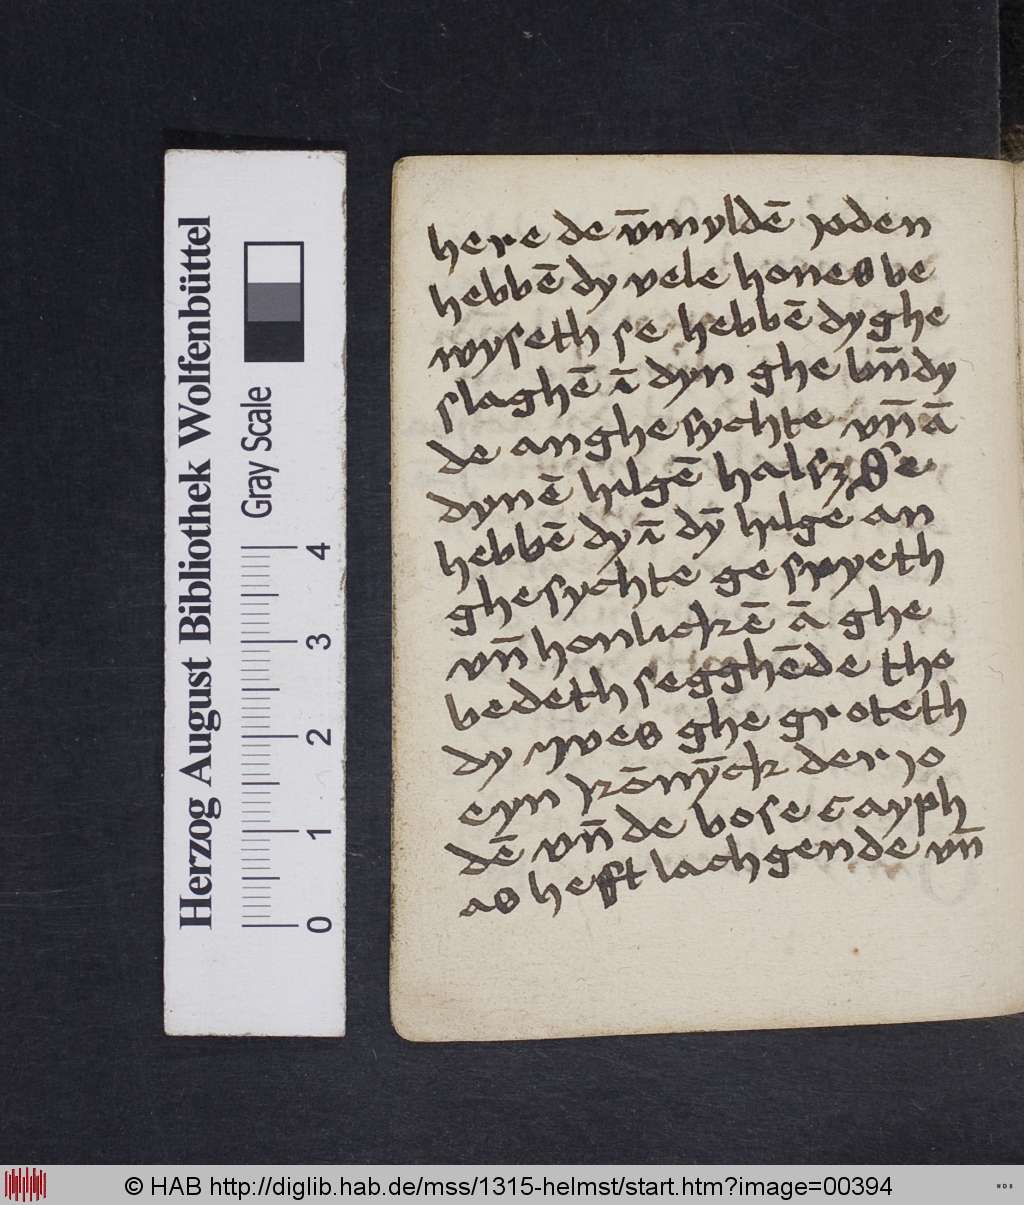 here de v̄myldē joden
hebbē dy vele hones be
wyseth se hebbē dy ghe
slaghē ī dyn ghe bun̄dy
de anghesychte vn̄ ā
dynē hilgē halsz Se
hebbē dy ī dȳ hilge an
ghesychte gespyeth
vn̄ honlickē ā ghe
bedeth segghēde tho
dy ywes ghe groteth
eyn kōnȳck der jo
dē vn̄ de bose cayph
as hefft lachgende vn̄
Herzog August Bibliothek Wolfenbüttel
Gray Scale
0 1 2 3 4
© HAB http://diglib.hab.de/mss/1315-helmst/start.htm?image=00394